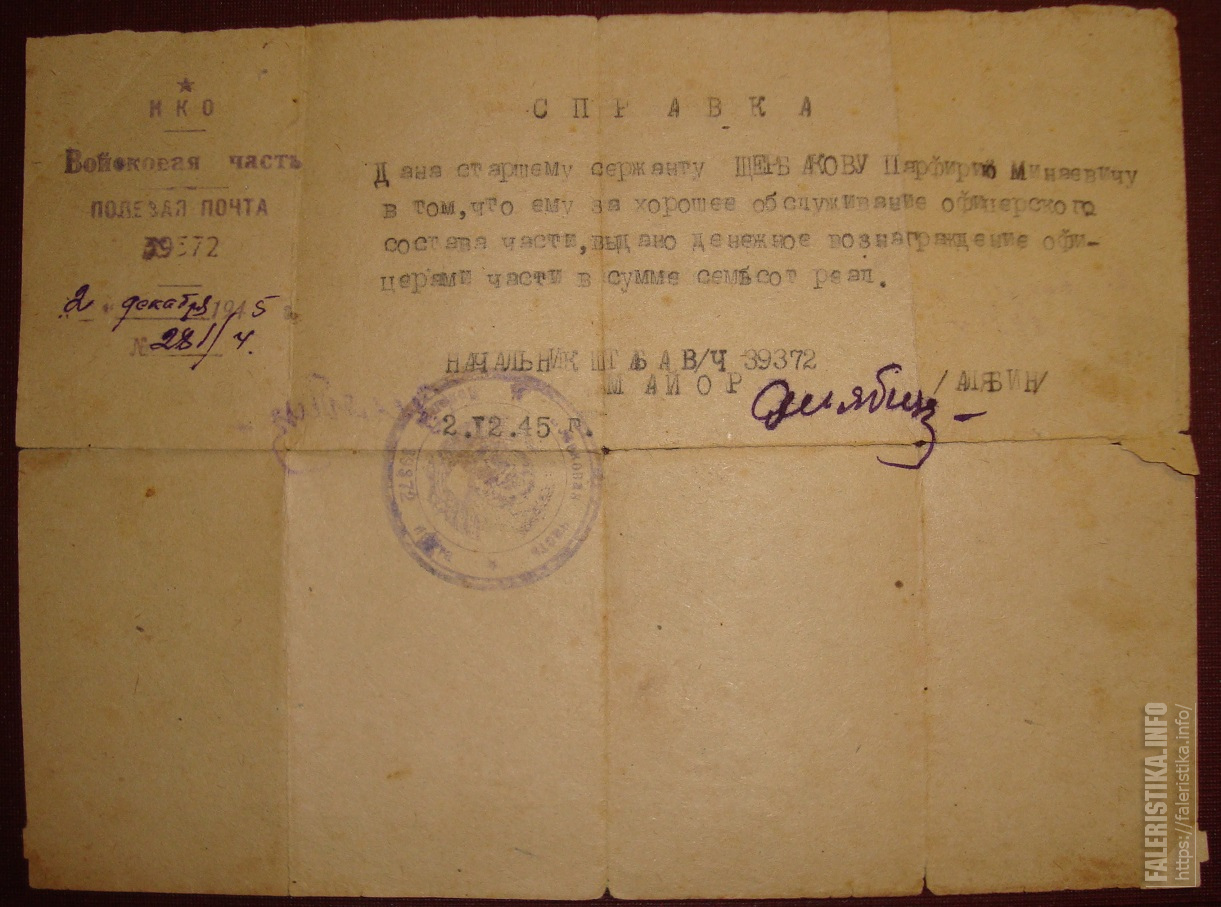 НКО
Войсковая часть
ПОЛЕВАЯ ПОЧТА
39372
"2" декабря 1945 г.
№ 281/ч.
СПРАВКА
Дана старшему сержанту ЩЕРБАКОВУ Парфирию Минаевичу
в том,что ему за хорошее обслуживание офицерского
состава части,выдано денежное вознаграждение офи-
церами части в сумме семьсот реал.
НАЧАЛЬНИК ШТАБА В/Ч 39372
МАЙОР /АЛЯБИН/
2.12.45 г.
войсковая часть
39372
FALERISTIKA.INFO
https://faleristika.info/